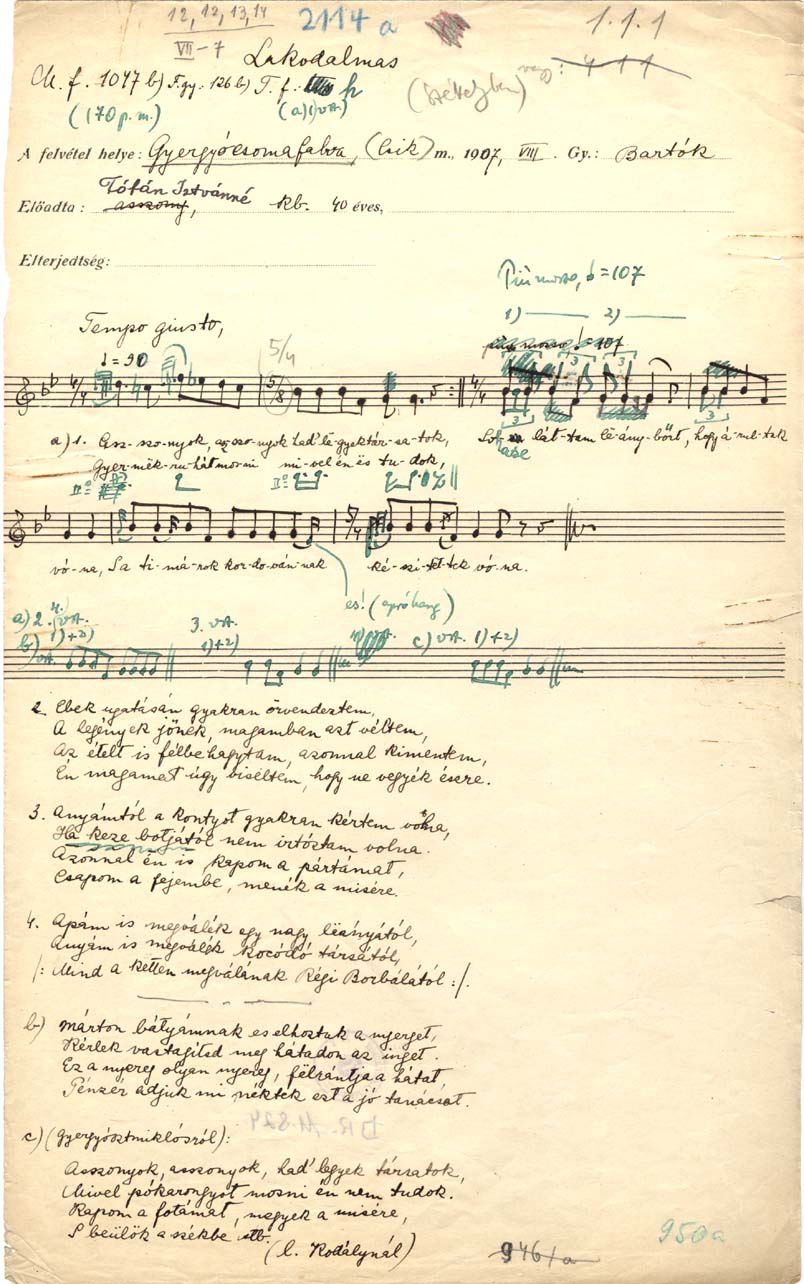 12, 12, 13, 14
VII-7
2114 a
1.1.1
Lakodalmas
M. f. 1047 b) F. gy: 126 b) T. f. h
vagy: 4 1 1
(170 p. m.)
(a) 1) VA.
A felvétel helye: Gyergyócsomafalva, (Csik) m., 1907, VIII. Gy.: Bartók
Tófán Istvánné
Előadta: asszony, kb. 40 éves,
Elterjedtség:
Più mosso, = 107
1) 2)
Tempo giusto,
= 90
più mosso = 107
5/4
4/4 5/8 4/4
3 3 3
a) 1. Asz-szo-nyok, asz-szo-nyok, had' lë-gyek tár-sa-tok,
lát-tam lë-ány-bőrt, hogy á-rul-tak
Gyer-mëk-ru-hát mos-ni mi-vel én ës tu-dok,
vó-na, Sa ti-má-rok kor-do-ván-nak ké-szi-tët-tek vó-na.
es! (apróhang)
a) 2. 4. VA.
b) VA. 1)+2)
3. VA.
1)+2)
c) VA. 1)+2)
2. Ebek ugatásán gyakran örvendeztem,
A legények jőnek, magamban azt véltem,
Az ételt is félbehagytam, azonnal kimentem,
Én magamat úgy viséltem, hogy ne vegyék észre.
3. Anyámtól a kontyot gyakran kértem vóna,
Ha keze botjától nem irtóztam volna.
Azonnal én is kapom a pártámat,
Csapom a fejembe, menék a misére.
4. Apám is megválék egy nagy lëányától,
Anyám is megválék kocódó társától,
/: Mind a ketten megválának Régi Borbálától :/.
b) Márton bátyámnak es elhoztuk a nyerget,
Kérlek vastagitsd meg hátadon az inget.
Ez a nyereg olyan nyereg, félrántja a hátat,
Pénzér adjuk mi nektek ezt a jó tanácsot.
DR. M. 824
c) (Gyergyósztmiklósról):
Asszonyok, asszonyok, had' legyek társatok,
Mivel pókarongyot mosni én nem tudok.
Kapom a fotámat, megyek a misére,
S beülök a székbe stb.
(l. Kodálynál)
946/a
950a